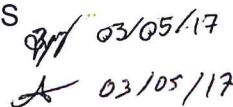 S
03/05/17
03/05/17